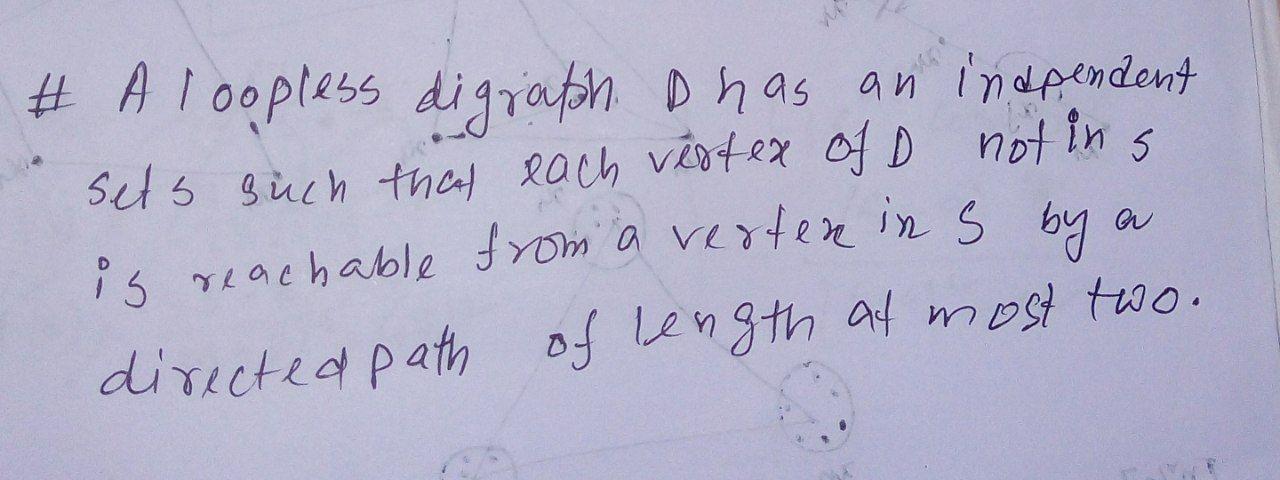 # A loopless digraph D has an indpendent
set s such that each vertex of D not in s
is reachable from a vertex in S by a
directed path of length at most two.